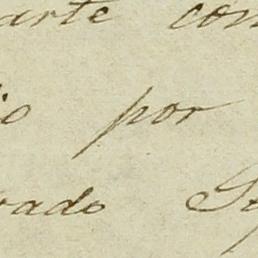 arte con
io por
rado